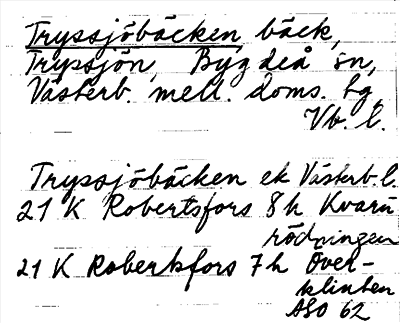 Tryssjöbäcken, bäck,
Tryssjön, Bygdeå sn,
Västerb. mell. doms. tg,
Vb. l.
Tryssjöbäcken ek Västerb. l.
21 K Robertsfors 8 h Kvarn
rödningen
21 K Robertsfors 7 h Över-
klinten
ASO 62